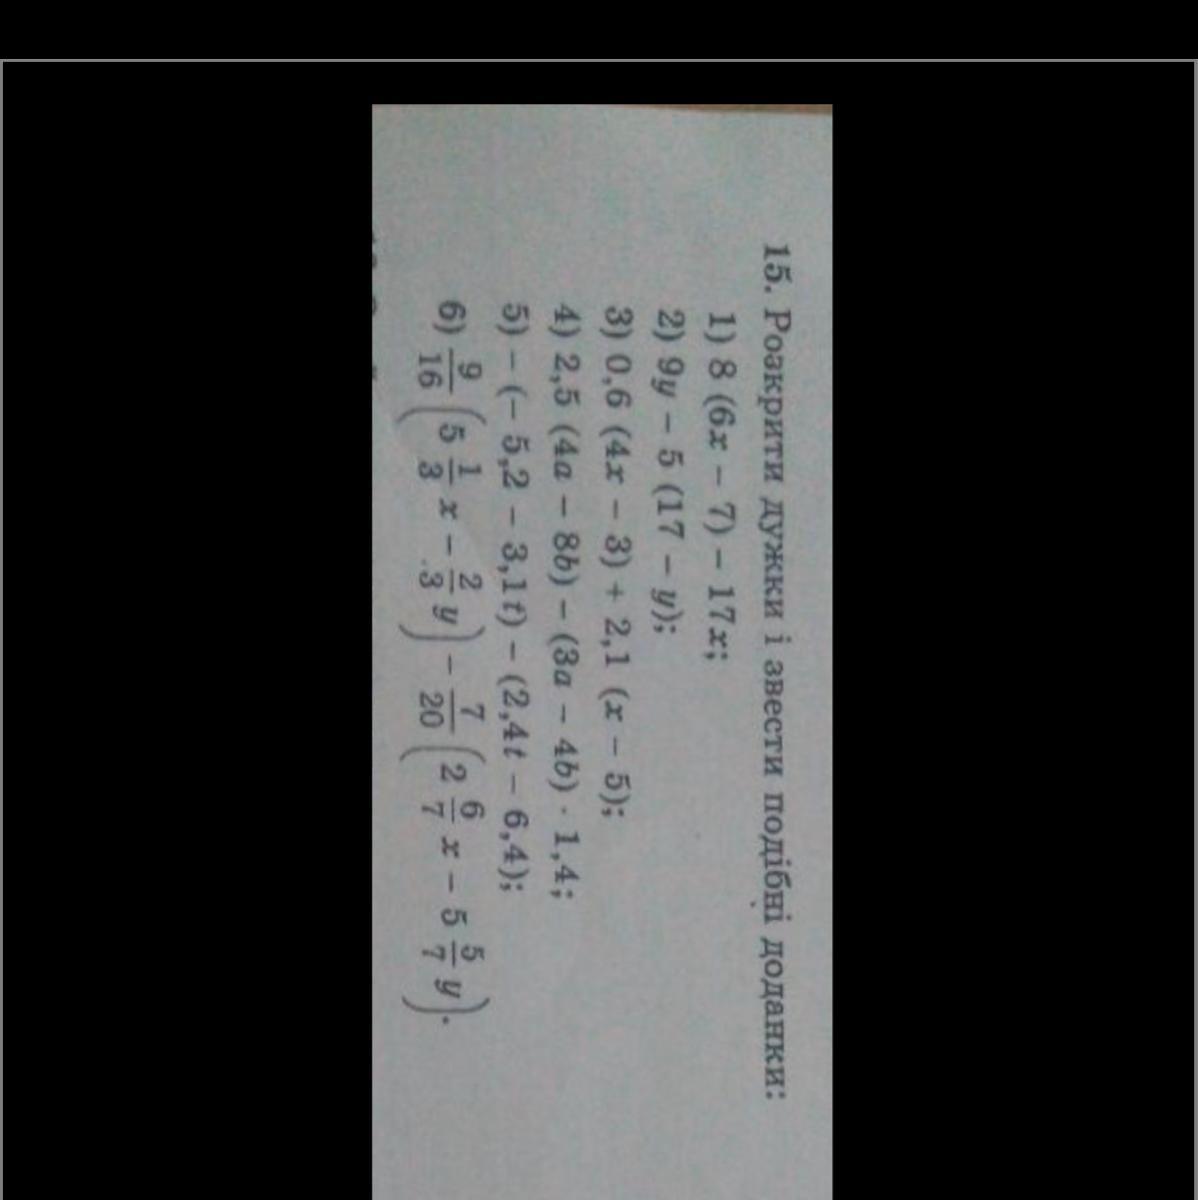 15. Розкрити дужки і звести подібні доданки:
1) 8 (6x – 7) – 17x;
2) 9y – 5 (17 – y);
3) 0,6 (4x – 3) + 2,1 (x – 5);
4) 2,5 (4a – 8b) – (3a – 4b) · 1,4;
5) – (– 5,2 – 3,1t) – (2,4t – 6,4);
6) 9/16 (5 1/3 x – 2/3 y) – 7/20 (2 6/7 x – 5 5/7 y).